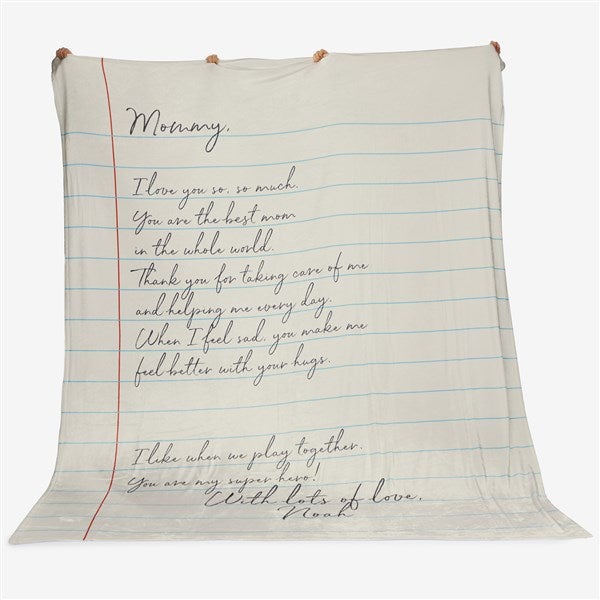 Mommy,
I love you so, so much.
You are the best mom
in the whole world.
Thank you for taking care of me
and helping me every day.
When I feel sad, you make me
feel better with your hugs.
I like when we play together.
You are my super hero!
With lots of love,
Noah